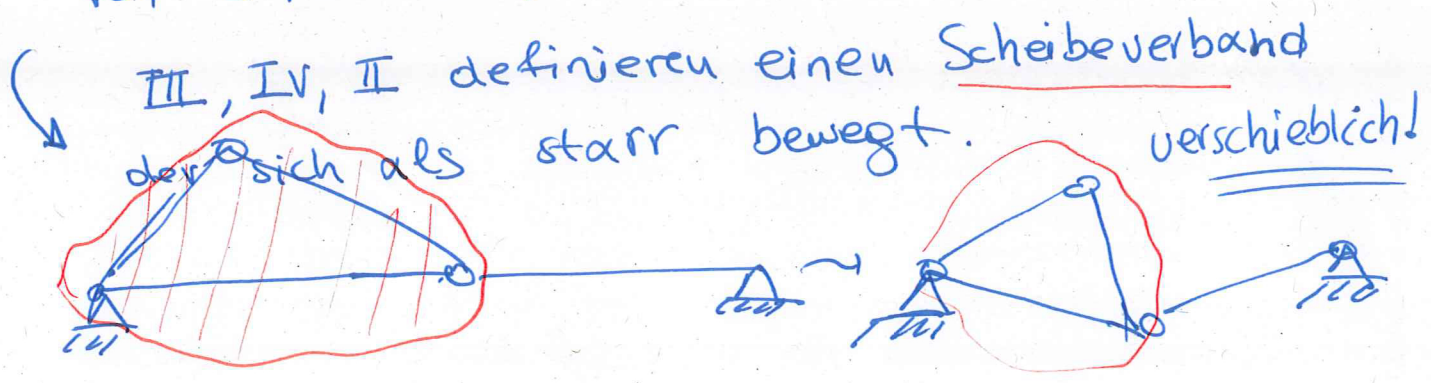 III, IV, II definieren einen Scheibeverband
der sich als starr bewegt.
verschieblich!